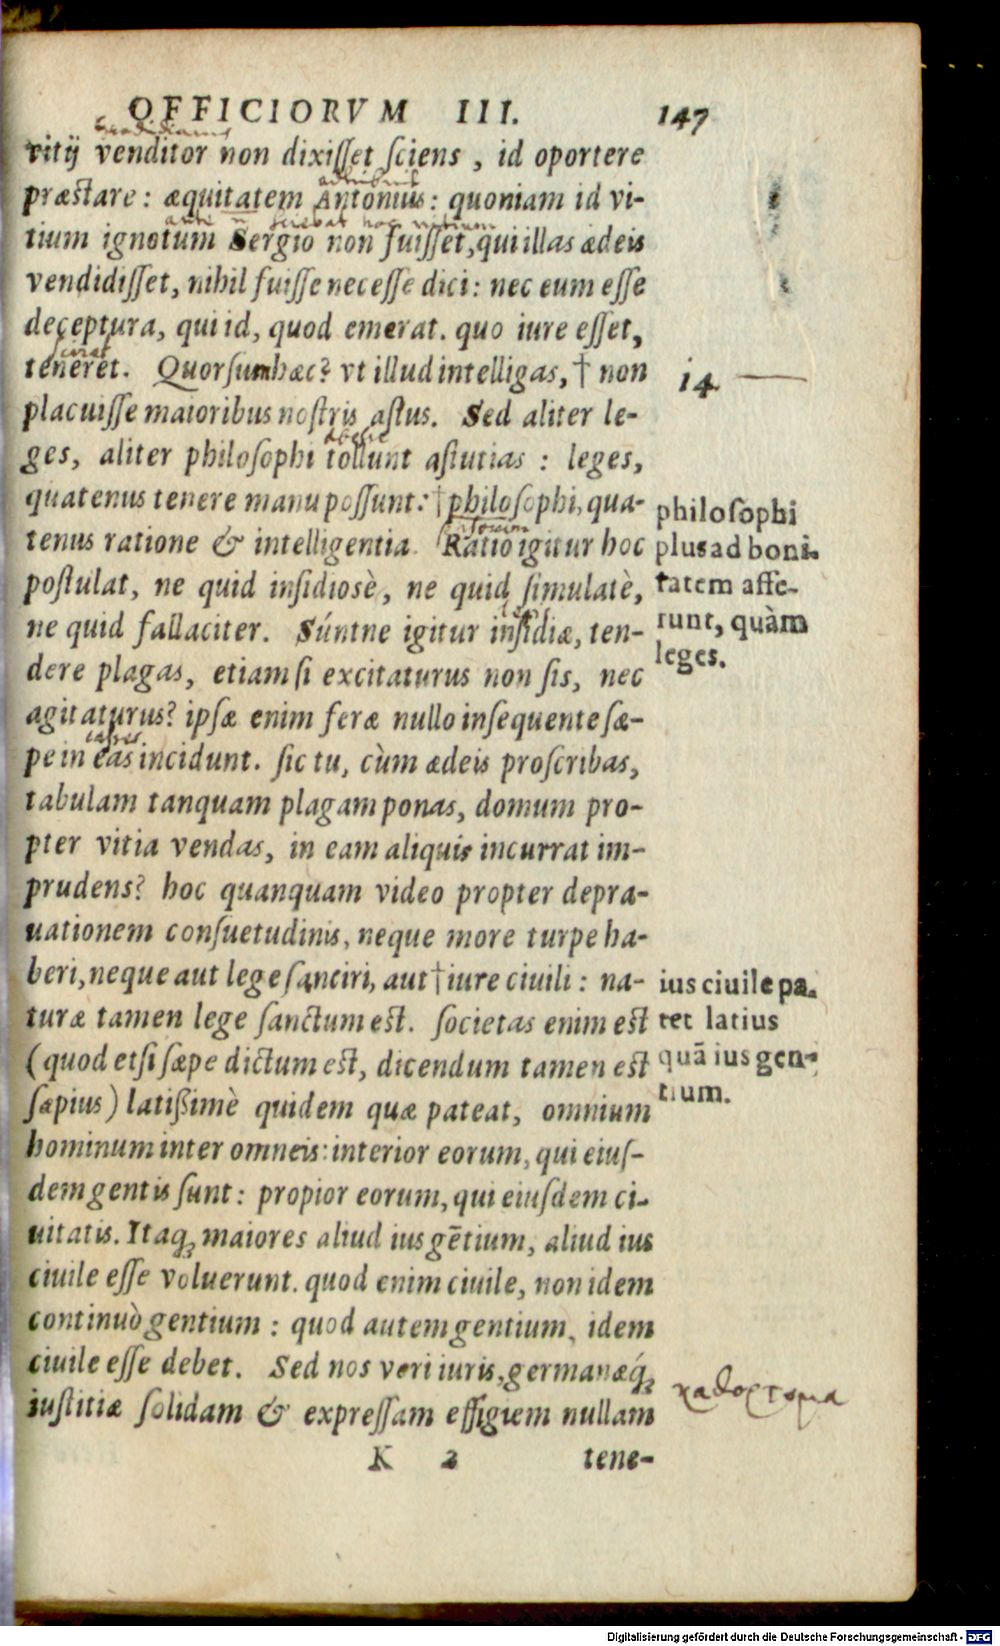 OFFICIORVM III. 147
vitij venditor non dixiſſet ſciens, id oportere
præstare: æquitatem Antonius: quoniam id vi-
tium ignotum Sergio non fuiſſet, qui illas ædeis
vendidiſſet, nihil fuiſſe neceſſe dici: nec eum eſſe
deceptum, qui id, quod emerat. quo iure eſſet,
teneret. Quorſum hæc? vt illud intelligas, † non
14
placuiſſe maioribus noſtris aſtus. Sed aliter le-
ges, aliter philoſophi tollunt aſtutias: leges,
quatenus tenere manu poſſunt: † philoſophi, qua-
tenus ratione & intelligentia. Ratio igitur hoc
poſtulat, ne quid inſidiosè, ne quid ſimulatè,
ne quid fallaciter. Súntne igitur inſidiæ, ten-
philoſophi
plus ad boni-
tatem affe-
runt, quàm
leges.
dere plagas, etiam ſi excitaturus non ſis, nec
agitaturus? ipſæ enim feræ nullo inſequente ſæ-
pe in eas incidunt. ſic tu, cùm ædeis proſcribas,
tabulam tanquam plagam ponas, domum pro-
pter vitia vendas, in eam aliquis incurrat im-
prudens? hoc quanquam video propter depra-
uationem conſuetudinis, neque more turpe ha-
beri, neque aut lege ſanciri, aut † iure ciuili: na-
turæ tamen lege ſanctum est. ſocietas enim est
(quod etſi ſæpe dictum est, dicendum tamen est
ſæpius) latiſſimè quidem quæ pateat, omnium
ius ciuile pa-
tet latius
quā ius gen-
tium.
hominum inter omneis: interior eorum, qui eiuſ-
dem gentis ſunt: propior eorum, qui eiuſdem ci-
uitatis. Itaq; maiores aliud ius gētium, aliud ius
ciuile eſſe voluerunt. quod enim ciuile, non idem
continuò gentium: quod autem gentium, idem
ciuile eſſe debet. Sed nos veri iuris, germanæq́;
iuſtitiæ ſolidam & expreſſam effigiem nullam
K 2 tene-
Digitalisierung gefördert durch die Deutsche Forschungsgemeinschaft - DFG